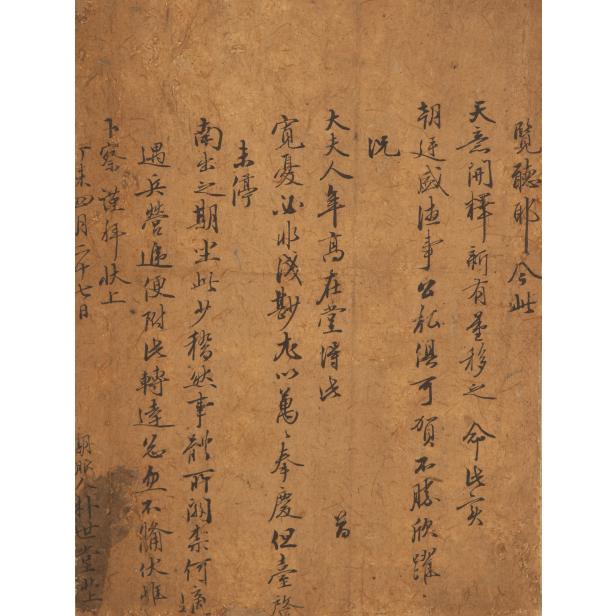 覽聽耶今此
天意開釋新有量移之 命此實
朝廷盛德事公私俱可賀不勝欣躍
況
大夫人年高在堂得此
寬憂必非淺尠尤以萬〻奉慶但臺啓 尙
未停
南出之期坐此少稽然事體所關柰何適
遇兵營遞便附此轉達忽忽不備伏惟
下察謹拜狀上
丁未四月二十七日
朝服人朴世堂